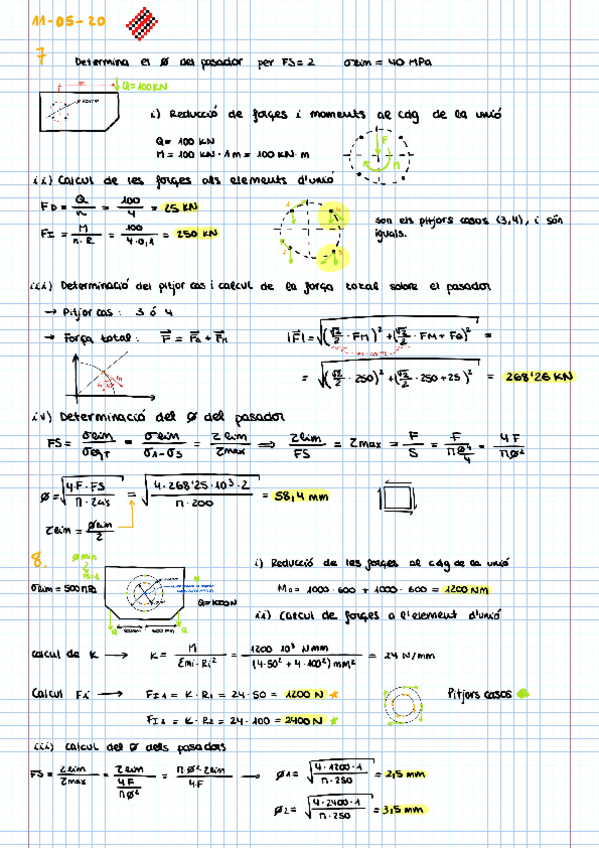 11-05-20
7 Determina el Ø del pasador per FS=2 σlim = 40 MPa
Q=100KN
i) Reducció de forçes i moments al cdg de la unió
Q= 100 KN
M= 100 KN · 1 m = 100 KN·m
F
M
ii) Calcul de les forçes als elements d'unió
FD = Q/n = 100/4 = 25 KN
FI = M/n·R = 100/4·0,1 = 250 KN
son els pitjors casos (3,4), i són
iguals.
iii) Determinació del pitjor cas i calcul de la força total sobre el pasador
→ Pitjor cas: 3 ó 4
→ Força total: F = FQ + FM |F| = √((√2/2 · FM)² + (√2/2 · FM + FQ)²) =
= √((√2/2 · 250)² + (√2/2 · 250 + 25)²) = 268'26 KN
iv) Determinació del Ø del pasador
FS = σlim/σeqT = σlim/σ1-σ3 = τlim/τmax ⇒ τlim/FS = τmax = F/S = F/πØ²/4 = 4F/πØ²
Ø = √(4·F·FS/π·τlim) = √(4·268'25·10³·2/π·200) = 58,4 mm
τlim = σlim/2
8. Ø min
σlim = 500 MPa
Q=1000N
Q Q
600mm 600 mm
i) Reducció de les forçes al cdg de la unió
MO = 1000·600 + 1000·600 = 1200 Nm
ii) Calcul de forçes a l'element d'unió
calcul de K → K = M/Σmi·Ri² = 1200 10³ Nmm/(4·50² + 4·100²) mm² = 24 N/mm
Calcul Fi → FI1 = K·R1 = 24·50 = 1200 N ★
Pitjors casos
FI2 = K·R2 = 24·100 = 2400 N ★
iii) Calcul del Ø dels pasadors
FS = τlim/τmax = τlim/4F/πØ² = πØ²τlim/4F → Ø1 = √(4·1200·1/π·250) = 2,5 mm
Ø2 = √(4·2400·1/π·250) = 3,5 mm